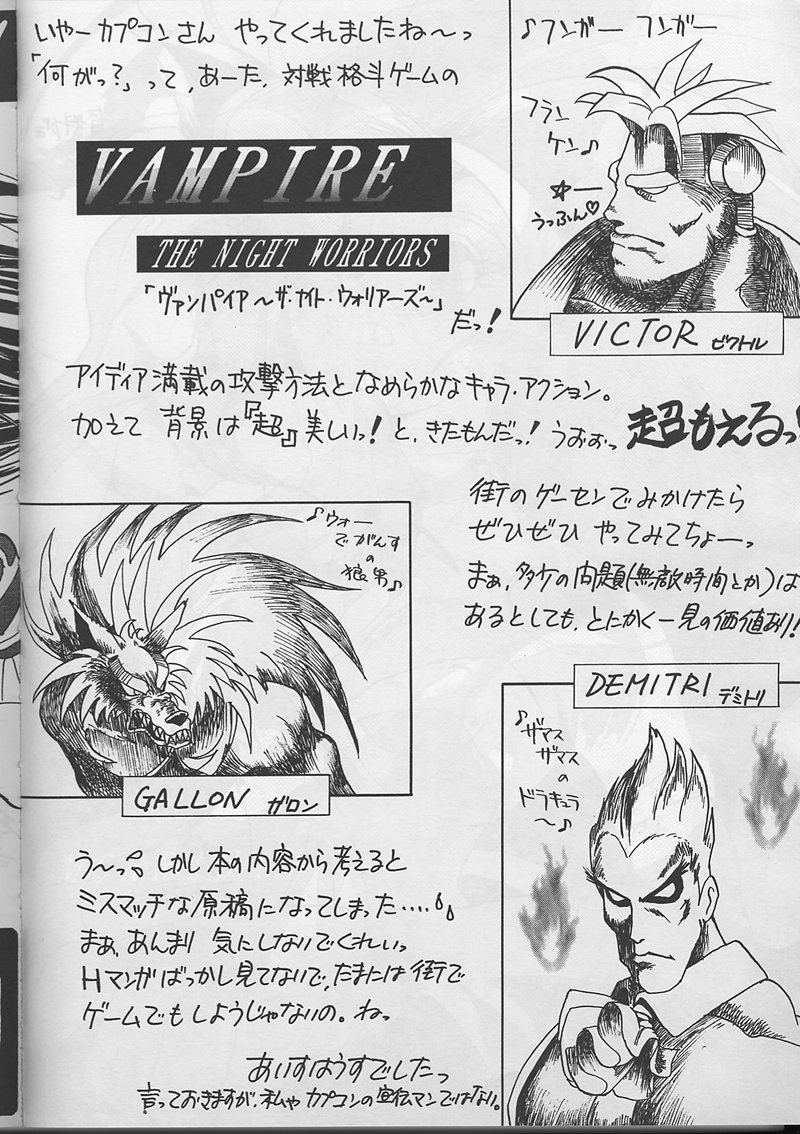 いやーカプコンさん やってくれましたね～っ
「何がっ?」って,あーた,対戦格斗ゲームの
VAMPIRE
THE NIGHT WORRIORS
「ヴァンパイア～ザ・ナイト・ウォリアーズ～」
だっ!
♪フンガー フンガー
フラン
ケン♪
☆ー
うっふん♡
VICTOR ビクトル
アイディア満載の攻撃方法となめらかなキャラ・アクション。
加えて 背景は『超』美しいっ! と,きたもんだっ! うおぉっ 超もえるっ!!
街のゲーセンでみかけたら
ぜひぜひ やってみてちょーっ
まぁ,多々の問題(無敵時間とか)は
あるとしても,とにかく一見の価値あり!
♪ウォー
でがんす
の
狼男♪
GALLON ガロン
DEMITRI デミトリ
♪ザマス
ザマス
の
ドラキュラ
～♪
う～っ。しかし本の内容から考えると
ミスマッチな原稿になってしまった‥‥
まぁ,あんまり 気にしないでくれいっ
Hマンガばっかし見てないで,たまには街で
ゲームでもしようじゃないの。ねっ
あいすはうすでしたっ
言っておきますが,私ゃカプコンの宣伝マンではない。